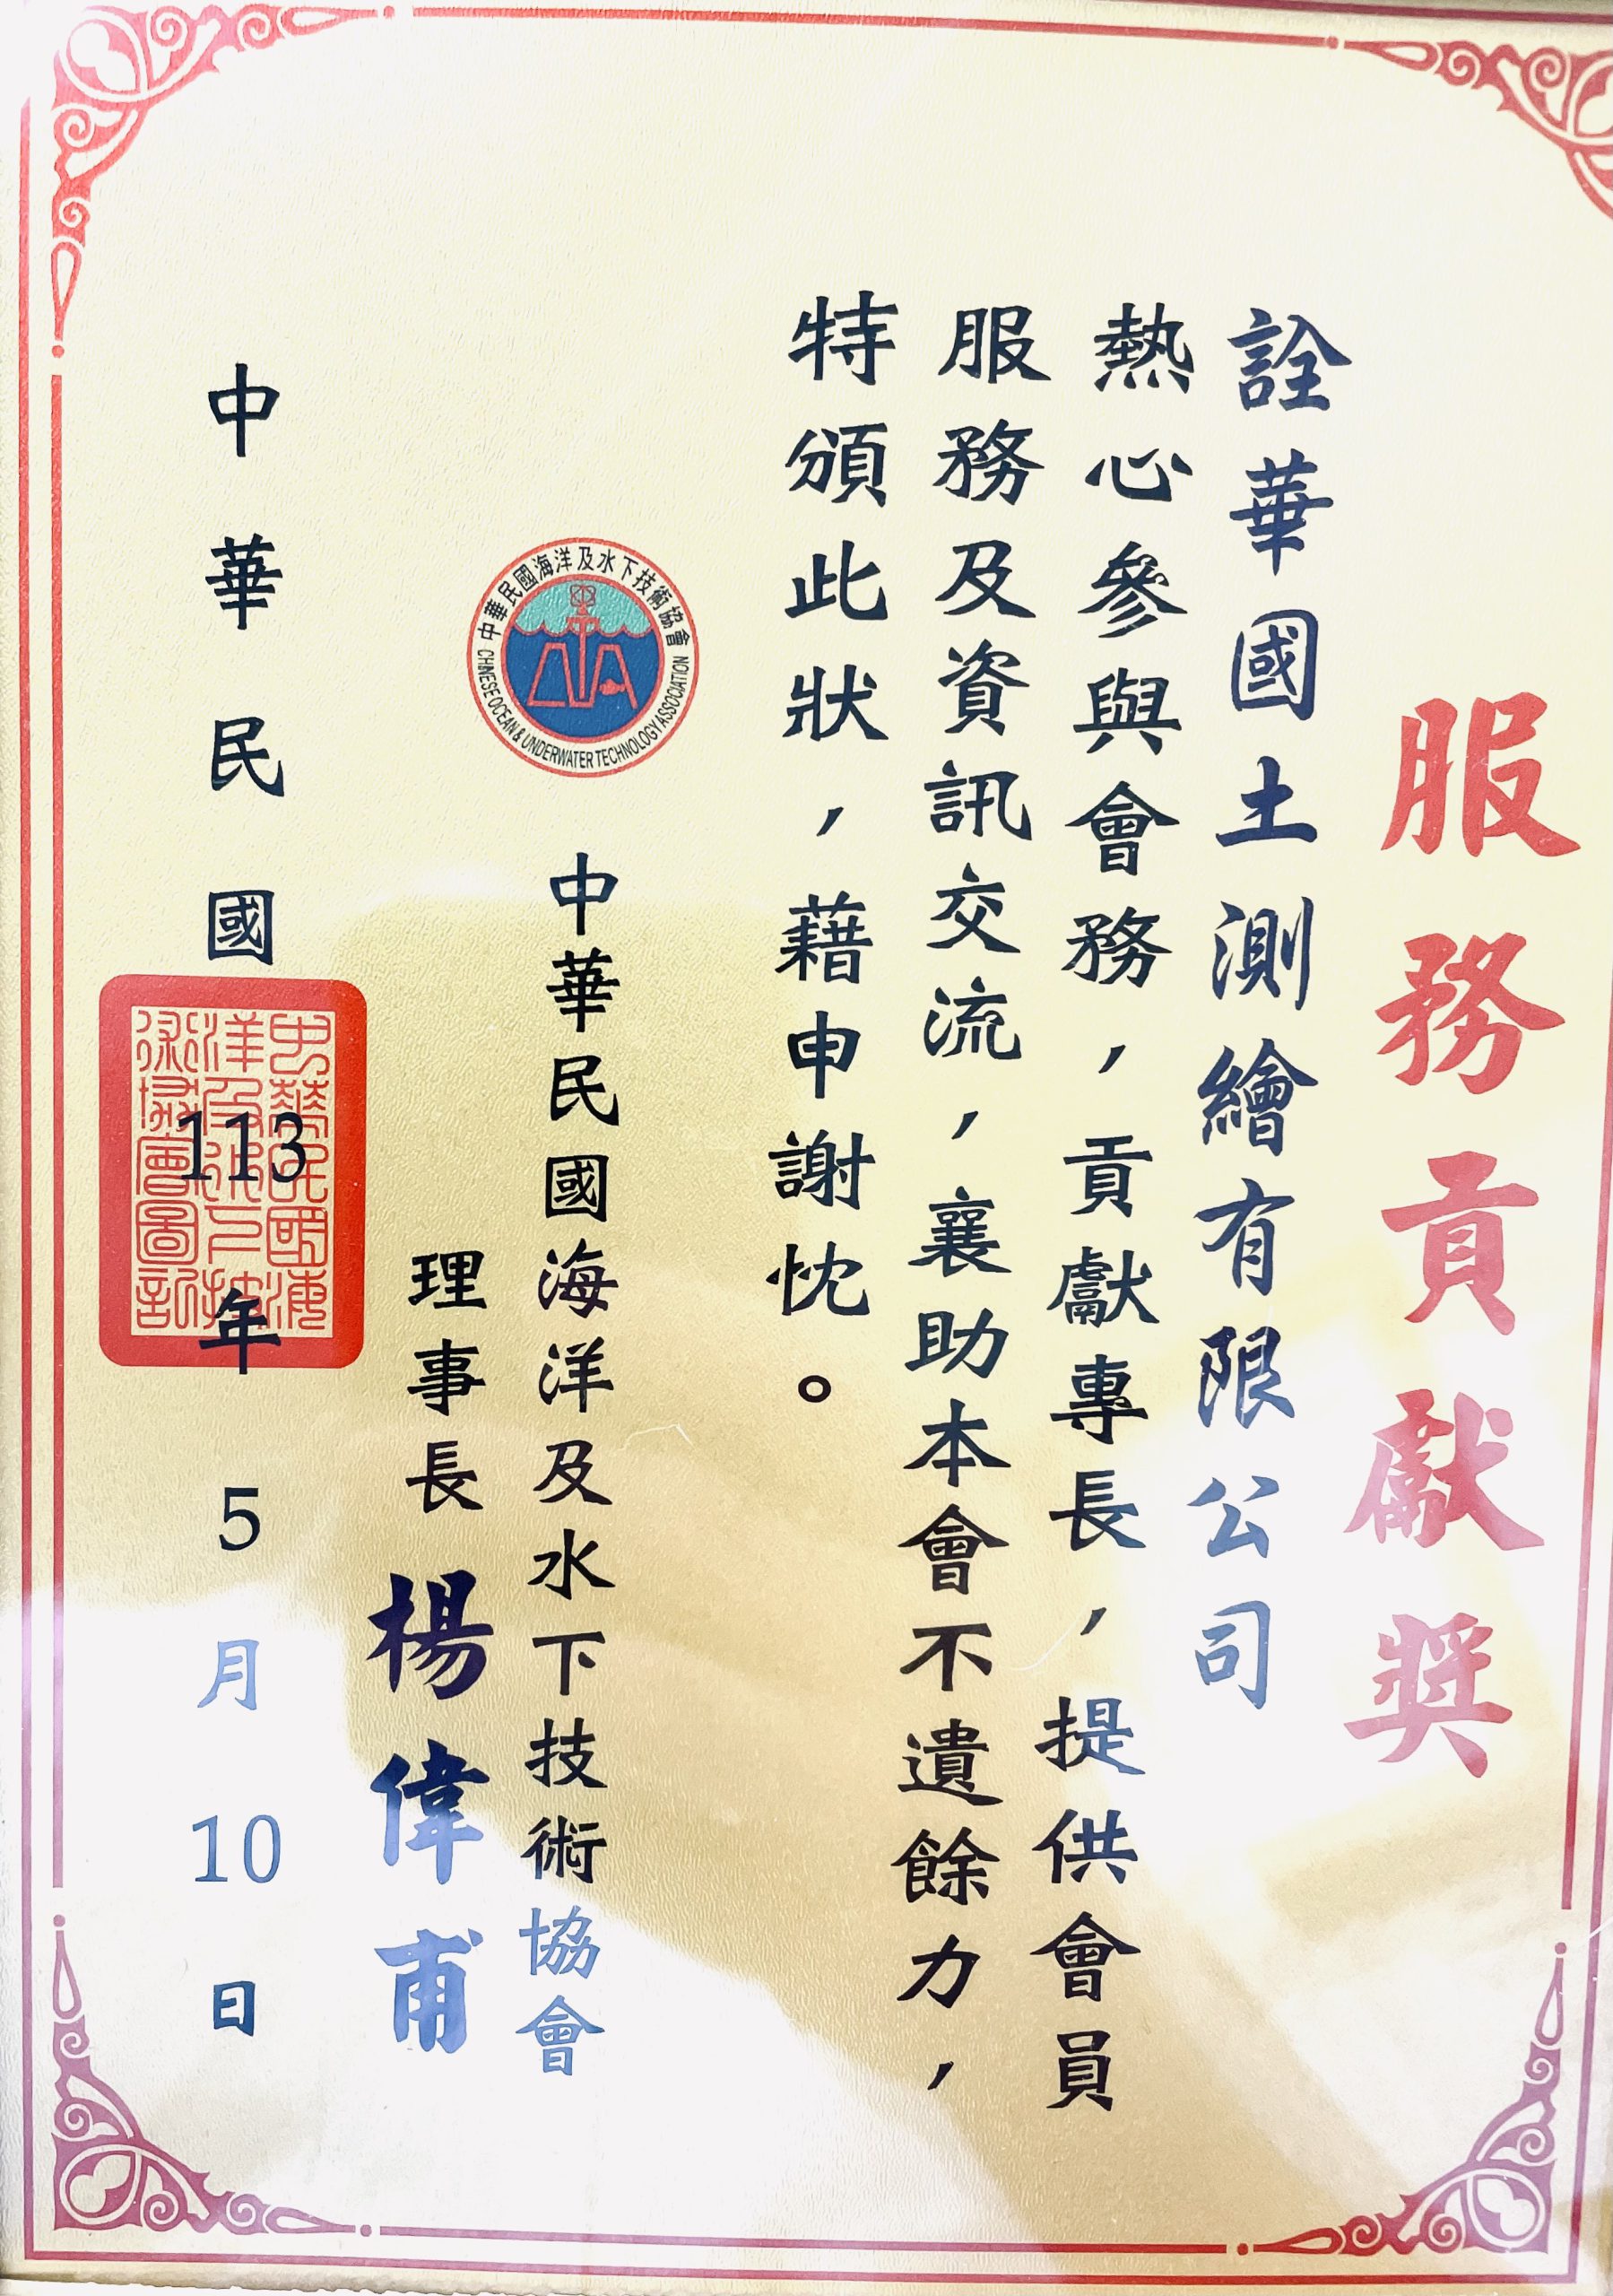 服務貢獻獎
詮華國土測繪有限公司
熱心參與會務，貢獻專長，提供會員
服務及資訊交流，襄助本會不遺餘力，
特頒此狀，藉申謝忱。
中華民國海洋及水下技術協會
CHINESE OCEAN & UNDERWATER TECHNOLOGY ASSOCIATION
中華民國海洋及水下技術協會
理事長 楊偉甫
中華民國海
洋及水下技
術協會圖記
中華民國113年5月10日